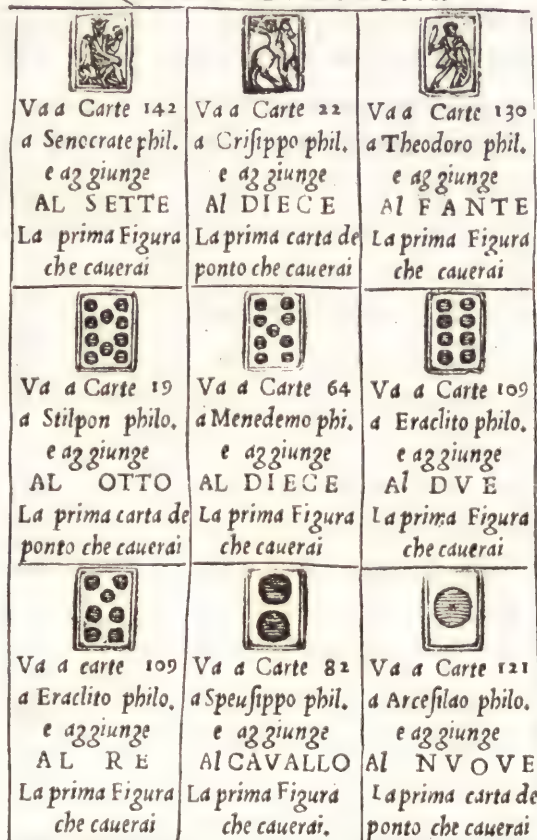 Va a Carte 142
a Senocrate phil.
e ag giunge
AL SETTE
La prima Figura
che cauerai
Va a Carte 22
a Criſippo phil.
e ag giunge
Al DIECE
La prima carta de
ponto che cauerai
Va a Carte 130
a Theodoro phil.
e ag giunge
Al FANTE
La prima Figura
che cauerai
Va a Carte 19
a Stilpon philo.
e ag giunge
AL OTTO
La prima carta de
ponto che cauerai
Va a Carte 64
a Menedemo phi.
e aggiunge
AL DIECE
La prima Figura
che cauerai
Va a Carte 109
a Eraclito philo.
e aggiunge
Al DVE
La prima Figura
che cauerai
Va a carte 109
a Eraclito philo.
e aggiunge
AL RE
La prima Figura
che cauerai
Va a Carte 82
a Speuſippo phil.
e aggiunge
Al CAVALLO
La prima Figura
che cauerai.
Va a Carte 121
a Arceſilao philo.
e aggiunge
Al NVOVE
La prima carta de
ponto che cauerai